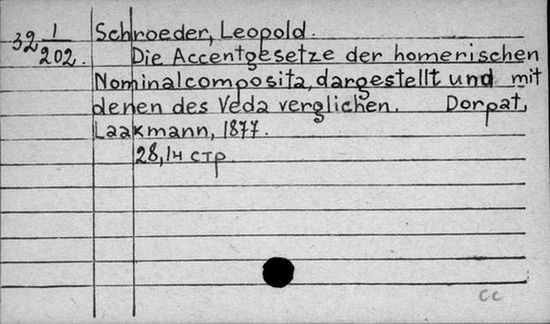 32 1/202.
Schroeder, Leopold.
Die Accentgesetze der homerischen
Nominalcomposita, dargestellt und mit
denen des Veda verglichen. Dorpat,
Laakmann, 1877.
28, 1н стр
cc